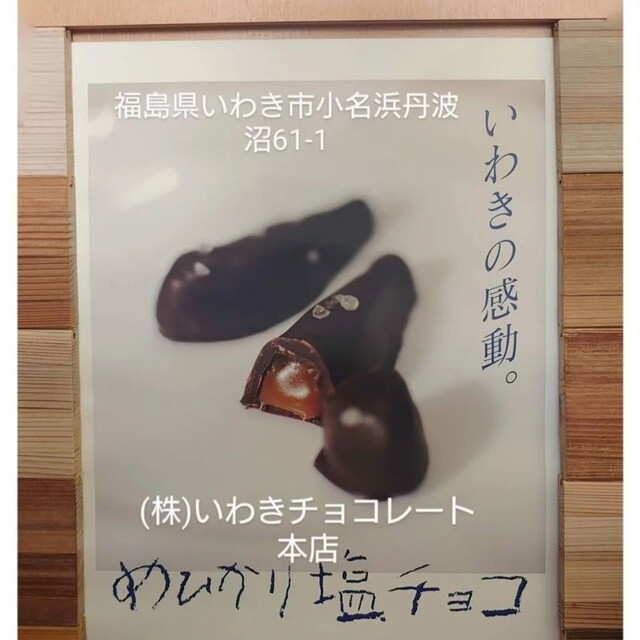 福島県いわき市小名浜丹波
沼61-1
いわきの感動。
(株)いわきチョコレート
本店
めひかり塩チョコ